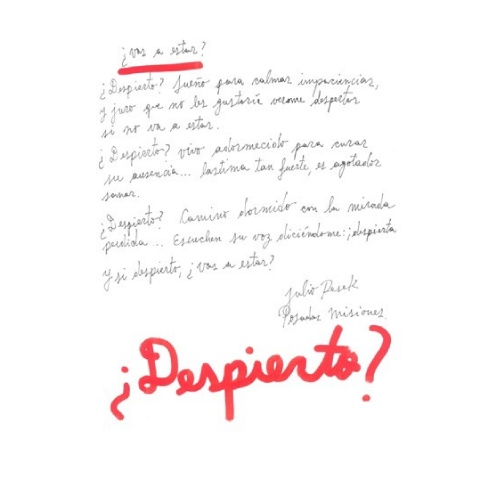 ¿vas a estar?
¿Despierto? Sueño para calmar impaciencias,
y juro que no les gustaría verme despertar
si no va a estar.
¿Despierto? vivo adormecido para curar
su ausencia... lastima tan fuerte, es agotador
sanar.
¿Despierto? Camino dormido con la mirada
perdida... Escuchen su voz diciéndome: ¡despierta
Y si despierto, ¿vas a estar?
Julio Pasek
Posadas Misiones
¿Despierto?